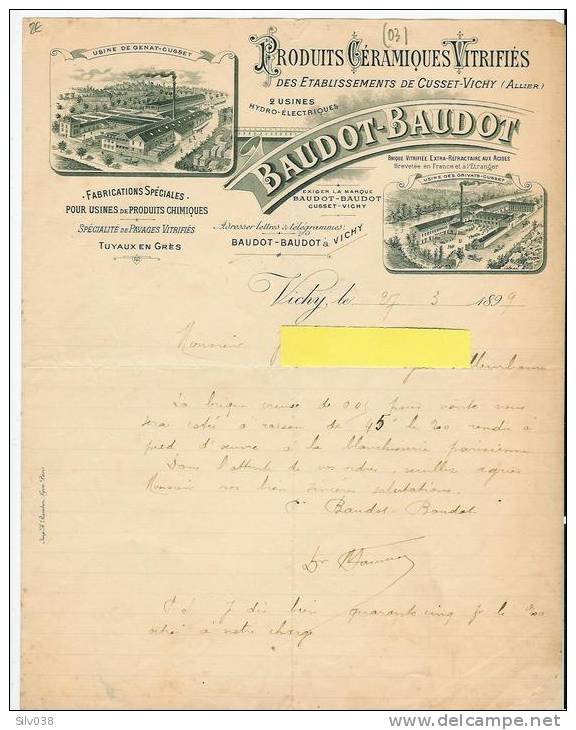 8E
(03)
USINE DE GENAT-CUSSET
PRODUITS CÉRAMIQUES VITRIFIÉS
DES ETABLISSEMENTS DE CUSSET-VICHY (ALLIER)
2 USINES
HYDRO-ÉLECTRIQUES
BAUDOT-BAUDOT
BRIQUE VITRIFIÉE EXTRA-RÉFRACTAIRE AUX ACIDES
Brevetée en France et à l'Etranger
USINE DES GRIVATS-CUSSET
EXIGER LA MARQUE
BAUDOT-BAUDOT
CUSSET-VICHY
Adresser lettres & télégrammes:
BAUDOT-BAUDOT à VICHY
FABRICATIONS SPÉCIALES
POUR USINES DE PRODUITS CHIMIQUES
SPÉCIALITÉ DE PAVAGES VITRIFIÉS
TUYAUX EN GRÈS
Vichy, le 27 3 1899
Monsieur
Lyon Villeurbanne
La brique creuse de 0.05 pour voute vous
sera cotée a raison de 45f le %00 rendu à
pied d'œuvre à la blanchisserie parisienne
Dans l'attente de vos ordres, veuillez agréer
Monsieur nos bien sincères salutations.
Baudot-Baudot
P.S. Je dis bien quarante cinq fr le %00
à notre charge
Slv038